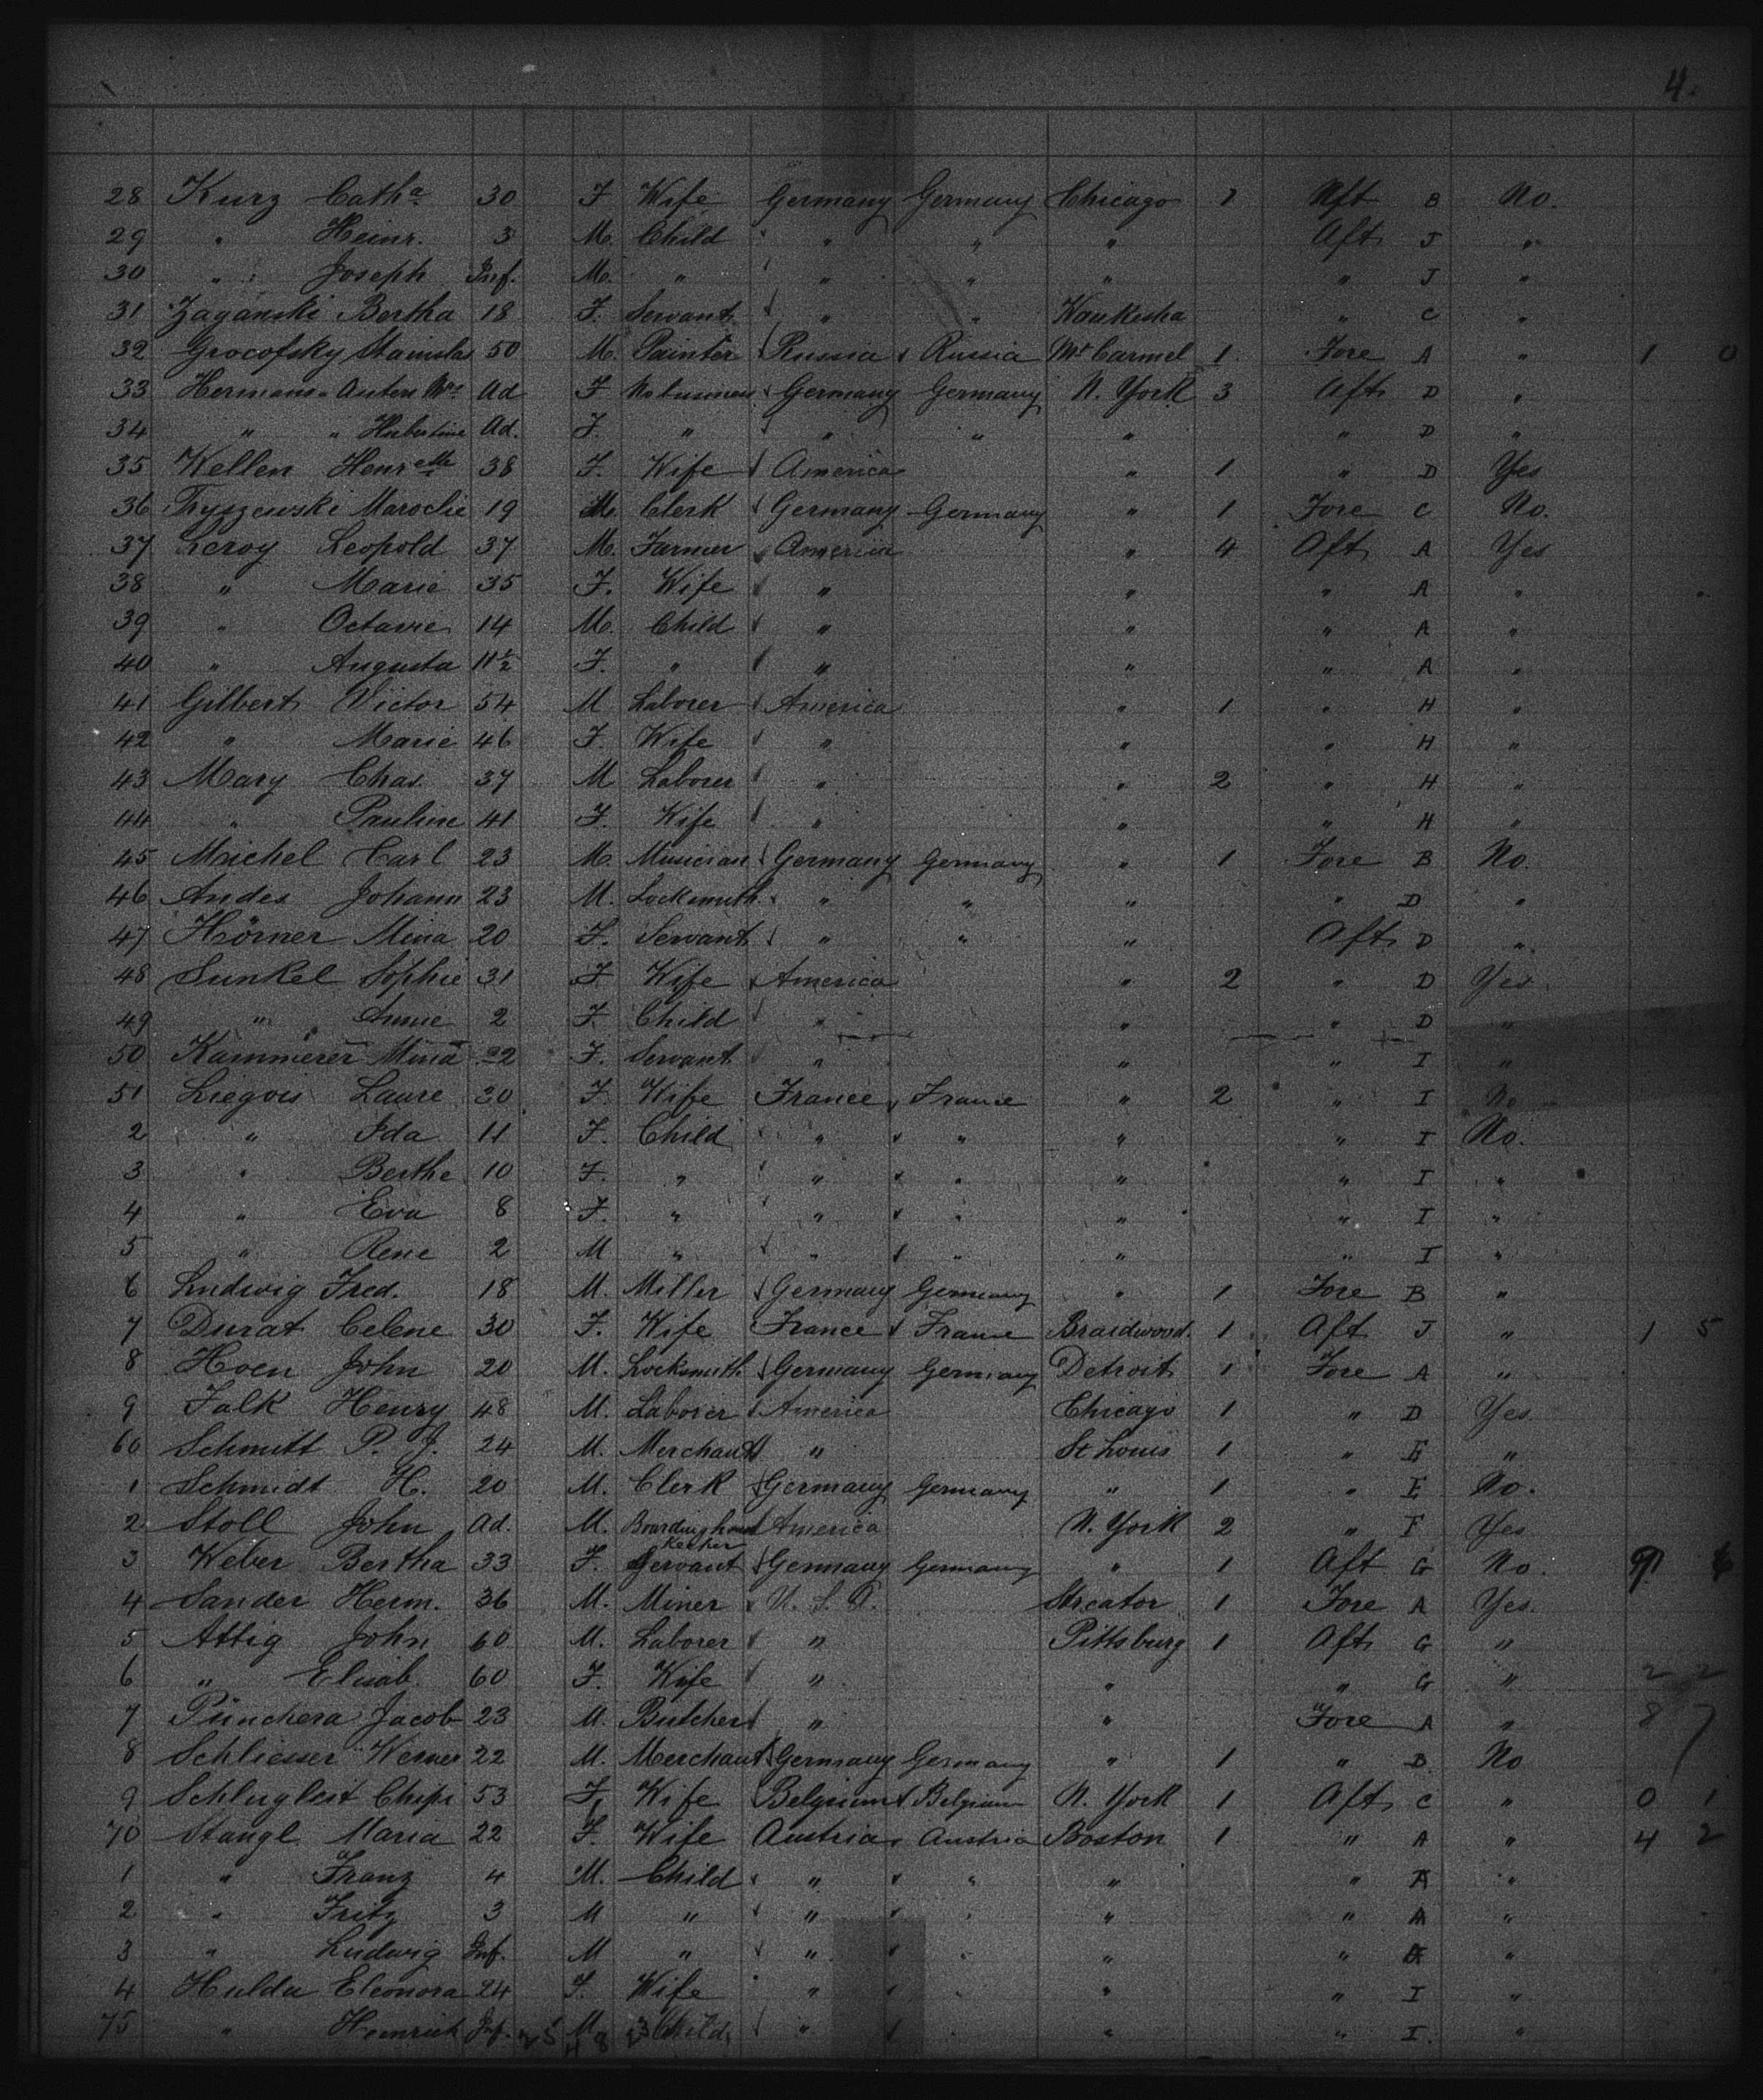 4.
28 Kurz Catha 30 F Wife Germany Germany Chicago 1 Aft B No.
29 " Heinr. 3 M. Child " " " Aft J "
30 " Joseph Inf. M. " " " " " J "
31 Zaganski Bertha 18 F. Servant " " Waukesha " C "
32 Grocofsky Stanisla 50 M. Painter Russia Russia Mt Carmel 1 Fore A " 1 0
33 Hermans Anton Mrs Ad F No business Germany Germany N. York 3 Aft D "
34 " " Hubertine Ad. F. " " " " " D "
35 Kellen Henrette 38 F. Wife America " 1 " D Yes
36 Tryszewski 19 M. Clerk Germany Germany " 1 Fore C No.
37 Leroy Leopold 37 M. Farmer America " 4 Aft A Yes
38 " Marie 35 F. Wife " " " A "
39 " Octavie 14 M. Child " " " A "
40 " Augusta 11½ F. " " " " A "
41 Gilbert Victor 54 M Laborer America " 1 " H "
42 " Marie 46 F. Wife " " " H "
43 Mary Chas. 37 M Laborer " " 2 " H "
44 " Pauline 41 F. Wife " " " H "
45 Michel Carl 23 M. Musician Germany Germany " 1 Fore B No.
46 Andes Johann 23 M. Locksmith " " " " D "
47 Hörner Mina 20 F. Servant " " " Aft D "
48 Sunkel Sophie 31 F Wife America " 2 " D Yes
49 " Annie 2 F. Child " " " D "
50 Kammerer Mina 22 F. Servant " " " I "
51 Liegois Laure 30 F. Wife France France " 2 " I No
2 " Ida 11 F. Child " " " " I No.
3 " Berthe 10 F. " " " " " I "
4 " Eva 8 F. " " " " " I "
5 " Rene 2 M " " " " " I "
6 Ludwig Fred. 18 M. Miller Germany Germany " 1 Fore B "
7 Durat Celene 30 F. Wife France France Braidwood 1 Aft J " 1 5
8 Hoen John 20 M. Locksmith Germany Germany Detroit 1 Fore A "
9 Falk Henry 48 M. Laborer America Chicago 1 " D Yes
60 Schmitt P. J. 24 M. Merchant " St Louis 1 " E "
1 Schmidt H. 20 M. Clerk Germany Germany " 1 " E No.
2 Stoll John Ad. M. Boardinghouse keeper America N. York 2 " F Yes
3 Weber Bertha 33 F. Servant Germany Germany " 1 Aft G No.
4 Sander Herm. 36 M. Miner U. S. A. Streator 1 Fore A Yes.
5 Attig John 60 M. Laborer " Pittsburg 1 Aft G "
6 " Elisab. 60 F. Wife " " " G " 2 2
7 Pünchera Jacob 23 M. Butcher " " Fore A " 8 7
8 Schliesser Werner 22 M. Merchant Germany Germany " 1 " D. No
9 53 F. Wife Belgium Belgium N. York 1 Aft C " 0 1
70 Stangl Maria 22 F. Wife Austria Austria Boston 1 " A " 4 2
1 " Franz 4 M. Child " " " " A "
2 " Fritz 3 M " " " " " A "
3 " Ludwig Inf. M " " " " " A "
4 Hulda Eleonora 24 F. Wife " " " " I "
75 " Heinrich Inf. M Child " " " " I. "